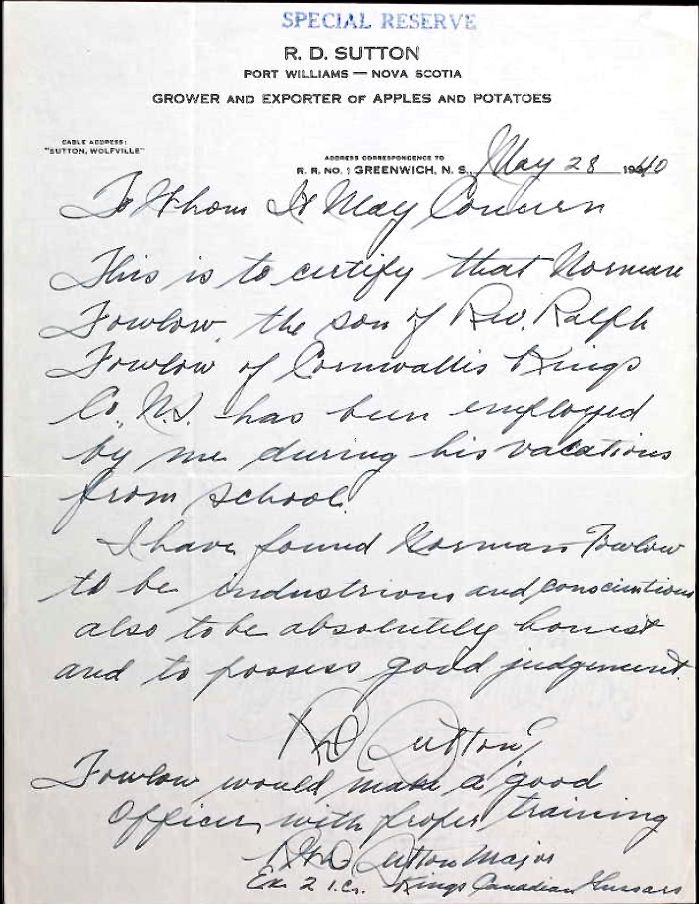 SPECIAL RESERVE
R. D. SUTTON
PORT WILLIAMS — NOVA SCOTIA
GROWER AND EXPORTER OF APPLES AND POTATOES
CABLE ADDRESS:
"SUTTON, WOLFVILLE"
ADDRESS CORRESPONDENCE TO
R. R. NO. 1 GREENWICH, N. S., May 28 1940
To Whom It May Concern
This is to certify that Norman
Fowlow, the son of Rev. Ralph
Fowlow of Cornwallis Kings
Co. N.S. has been employed
by me during his vacations
from school.
I have found Norman Fowlow
to be industrious and conscientious
also to be absolutely honest
and to possess good judgement.
RD Sutton
Fowlow would make a good
Officer, with proper training
RD Sutton Major
Ex. 2 I.C. Kings Canadian Hussars